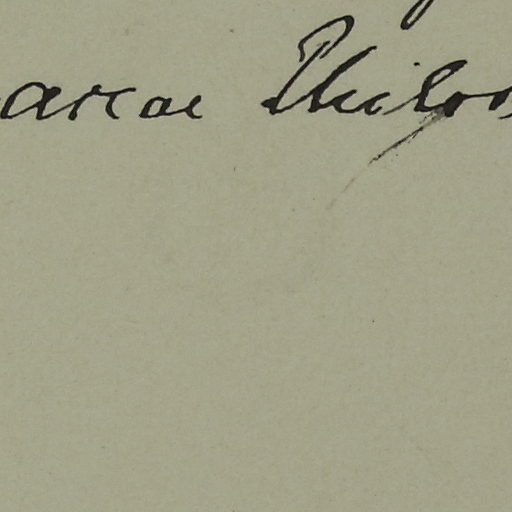 arcae Philos